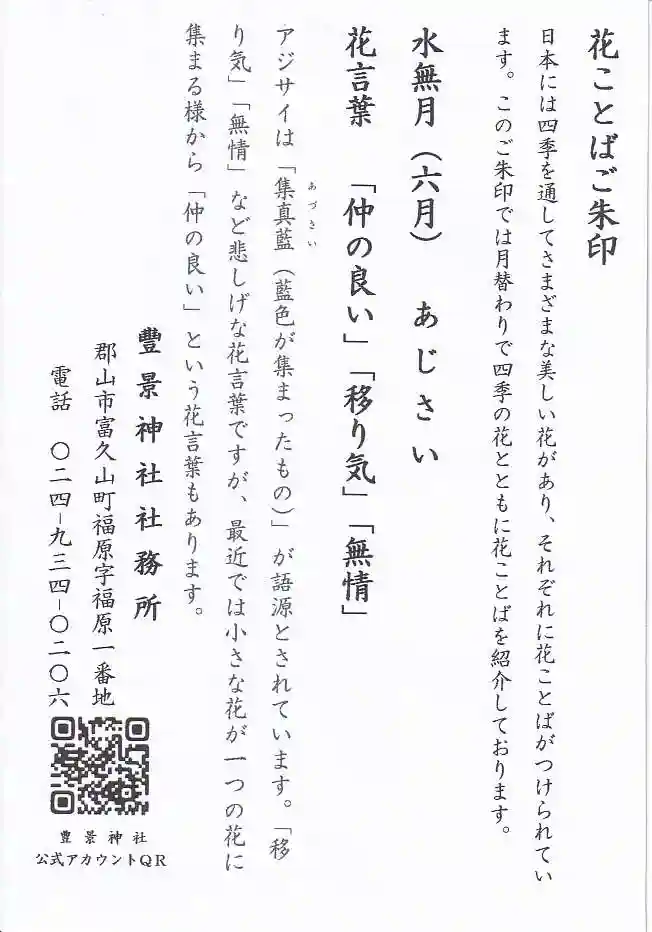 花ことばご朱印
日本には四季を通してさまざまな美しい花があり、それぞれに花ことばがつけられてい
ます。このご朱印では月替わりで四季の花とともに花ことばを紹介しております。
水無月（六月）　あじさい
花言葉　「仲の良い」「移り気」「無情」
アジサイは「集真藍（藍色が集まったもの）」が語源とされています。「移
あづさい
り気」「無情」など悲しげな花言葉ですが、最近では小さな花が一つの花に
集まる様から「仲の良い」という花言葉もあります。
豊景神社社務所
郡山市富久山町福原字福原一番地
電話　〇二四－九三四－〇二〇六
豊景神社
公式アカウントQR